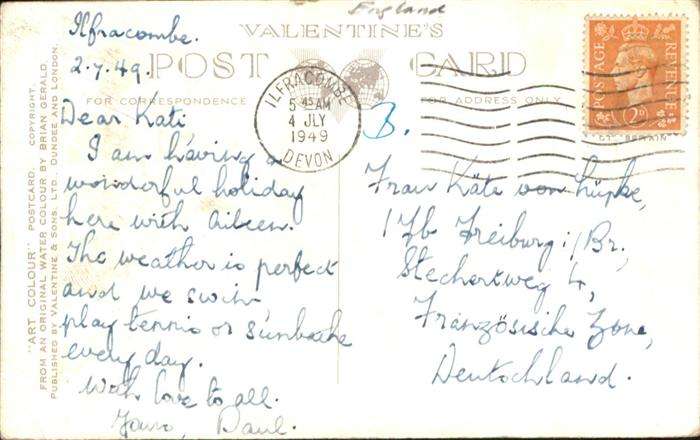 England
Ilfracombe.
2.7.49.
VALENTINE'S
POST CARD
FOR CORRESPONDENCE
FOR ADDRESS ONLY
ILFRACOMBE
5 45 AM
4 JLY
1949
DEVON
POSTAGE
REVENUE
2D
Dear Kati
I am having a
wonderful holiday
here with Aileen.
The weather is perfect
and we swim
play tennis or sunbathe
every day.
With love to all.
Yours, Paul.
B.
Frau Käte von Lüpke,
Freiburg i/Br.,
4,
Französische Zone,
Deutschland.
"ART COLOUR" POSTCARD. COPYRIGHT.
FROM AN ORIGINAL WATER COLOUR BY BRIAN GERALD.
PUBLISHED BY VALENTINE & SONS, LTD., DUNDEE AND LONDON.